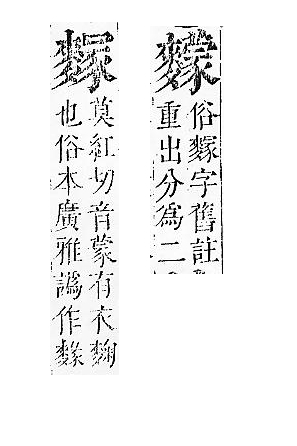 俗字舊註
重出分爲二
莫紅切音蒙有衣麴
也俗本廣雅譌作